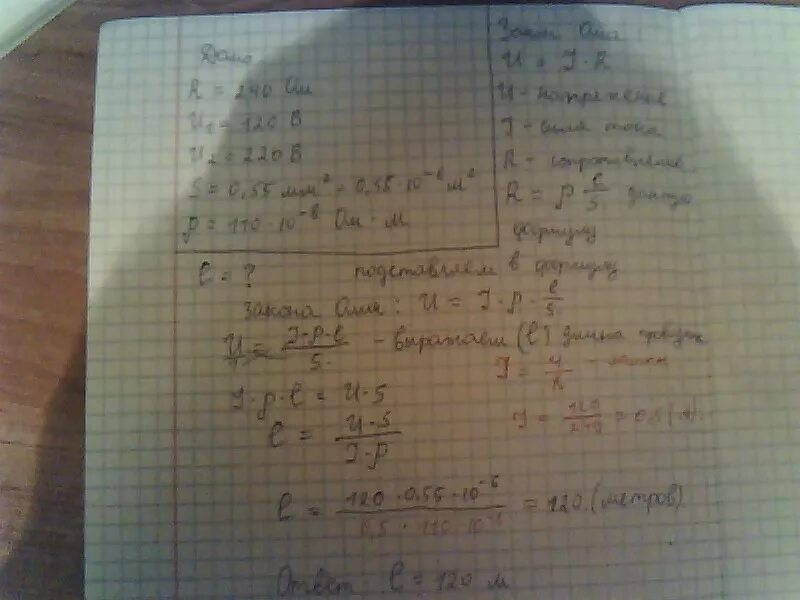 Дано
R = 240 Ом
U₁ = 120 В
U₂ = 220 В
S = 0,55 мм² = 0,55·10⁻⁶ м²
ρ = 110·10⁻⁸ Ом·м
l = ?
Закон Ома:
U = I·R
U - напряжение
I - сила тока
R - сопротивление
R = ρ l/S
формулу
подставляем в формулу
закона Ома: U = I·ρ·l/S
U = I·ρ·l/S - выражаем (l)
I·ρ·l = U·S
I = U/R
l = U·S/I·ρ
I = 120/240 = 0,5 (А).
l = 120·0,55·10⁻⁶/0,5·110·10⁻⁸ = 120 (метров)
Ответ: l = 120 м